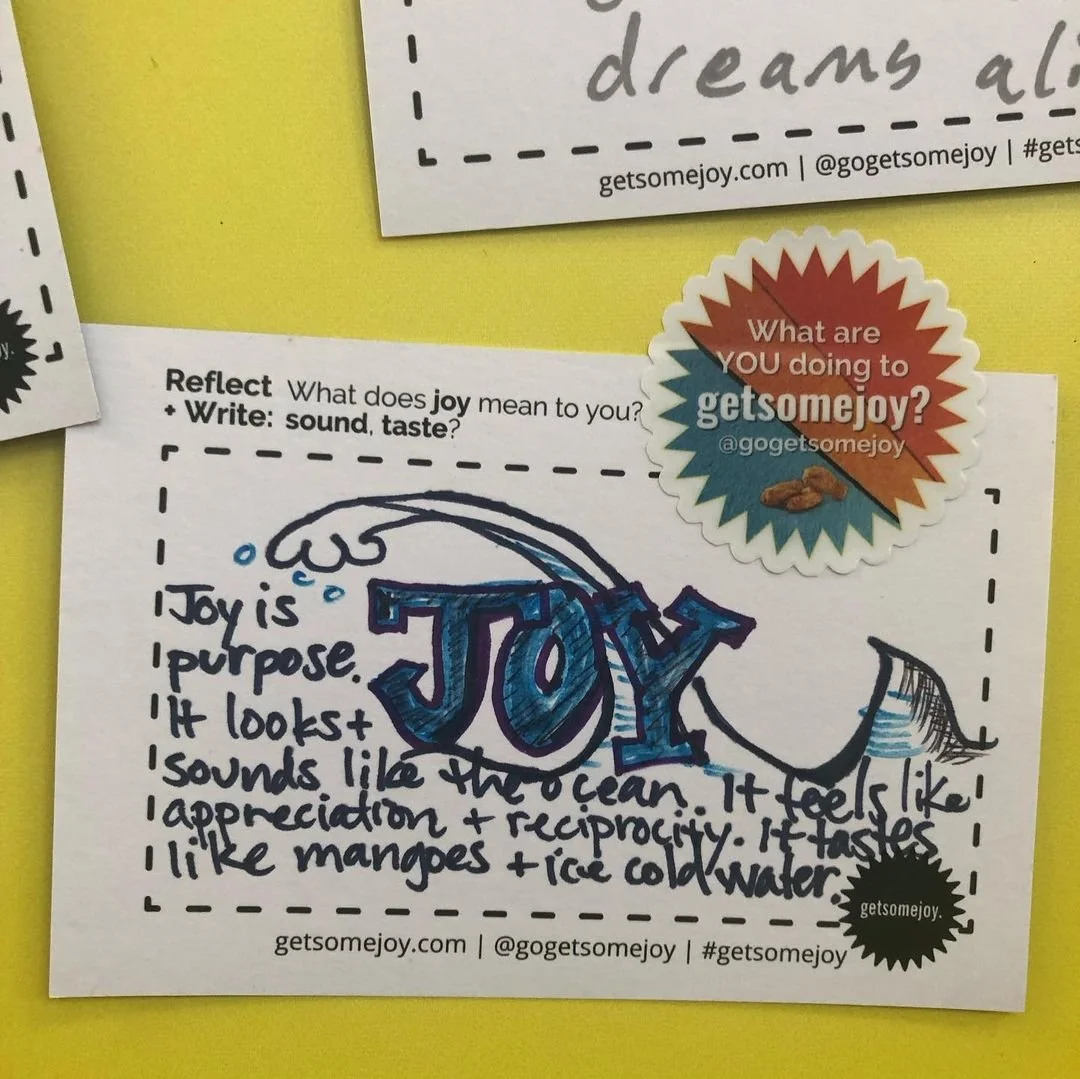 dreams
getsomejoy.com | @gogetsomejoy | #gets
What are
YOU doing to
getsomejoy?
@gogetsomejoy
Reflect What does joy mean to you?
+ Write: sound, taste?
JOY
Joy is
purpose.
It looks +
sounds like the ocean. It feels like
appreciation + reciprocity. It tastes
like mangoes + ice cold water.
getsomejoy.
getsomejoy.com | @gogetsomejoy | #getsomejoy